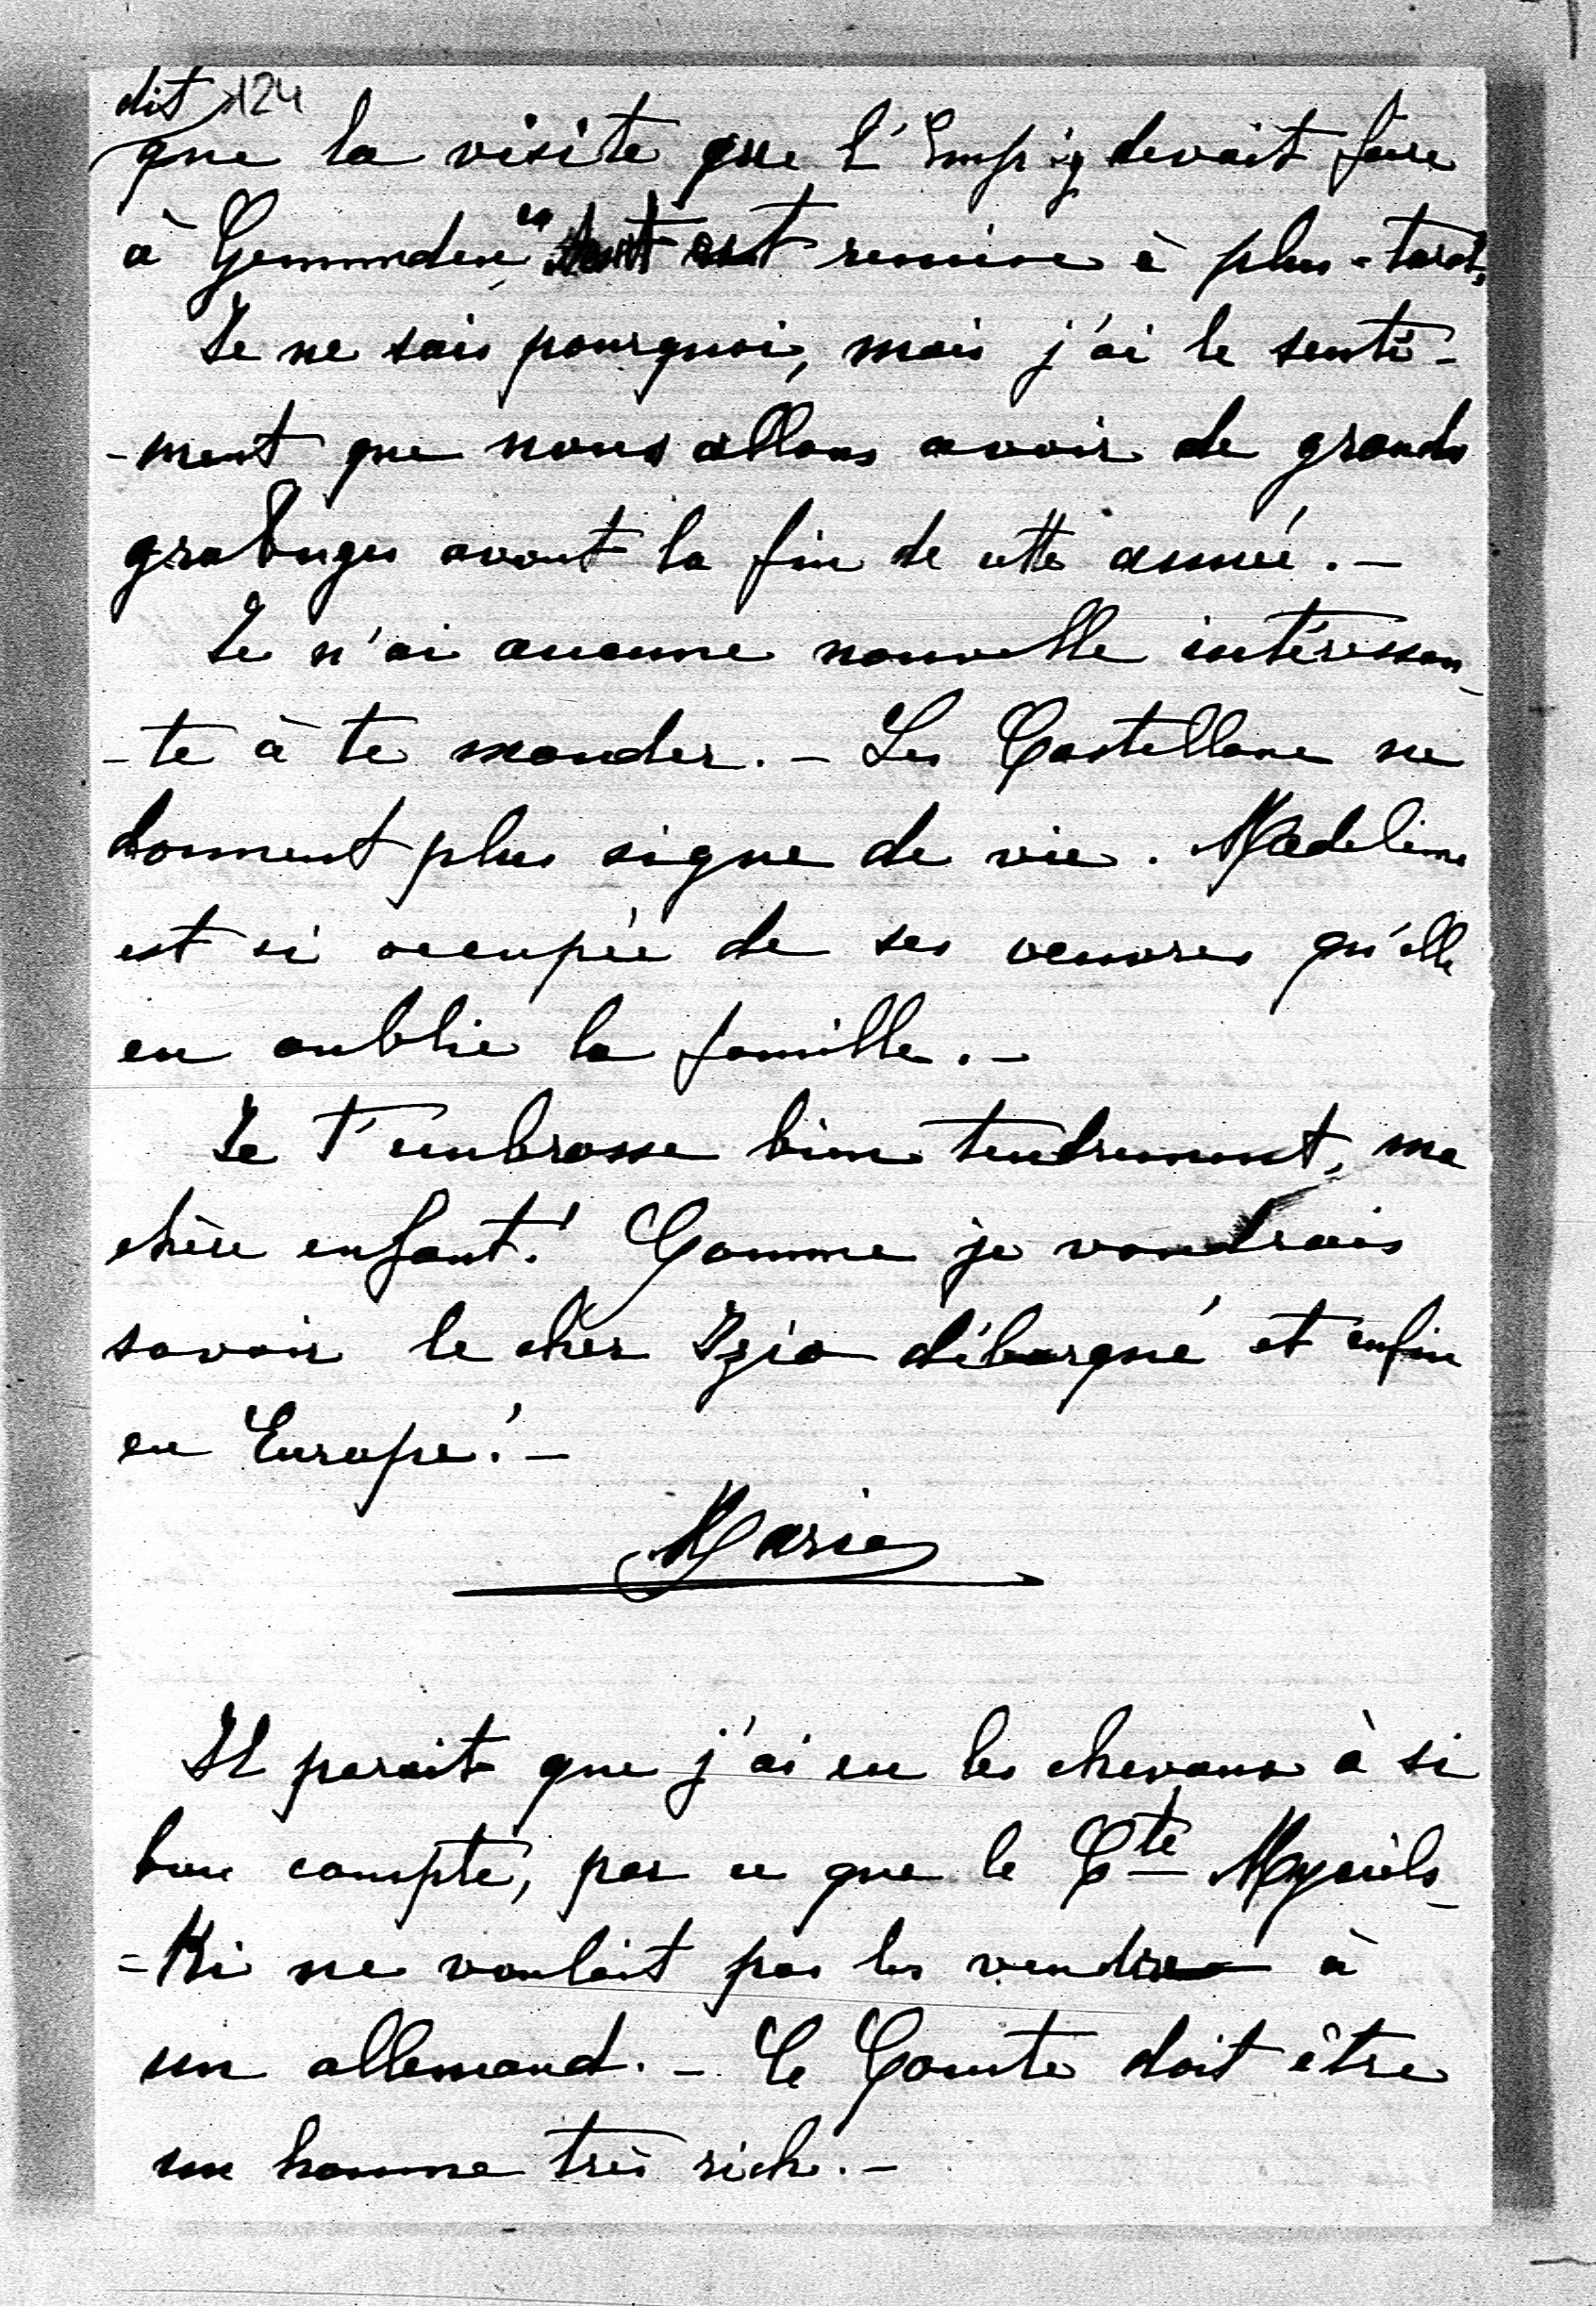 dit 124
que la visite que l'Emp: devait faire
à Gemunden est remise à plus-tard,
Je ne sais pourquoi, mais j'ai le senti-
-ment que nous allons avoir de grands
grabuges avant la fin de cette année.-
Je n'ai aucune nouvelle intéressan-
-te à te mander.- Les Castellane ne
donnent plus signe de vie. Madeleine
est si occupée de ses oeuvres qu'elle
en oublie la famille.-
Je t'embrasse bien tendrement, ma
chère enfant! Comme je voudrais
savoir le cher Izio débarqué et enfin
en Europe!-
Marie
Il parait que j'ai eu les chevaux à si
bon compte, par ce que le Cte Mycièls-
=Ki ne voulait pas les vendre à
un allemand.- Ce Comte doit être
un homme très riche.-